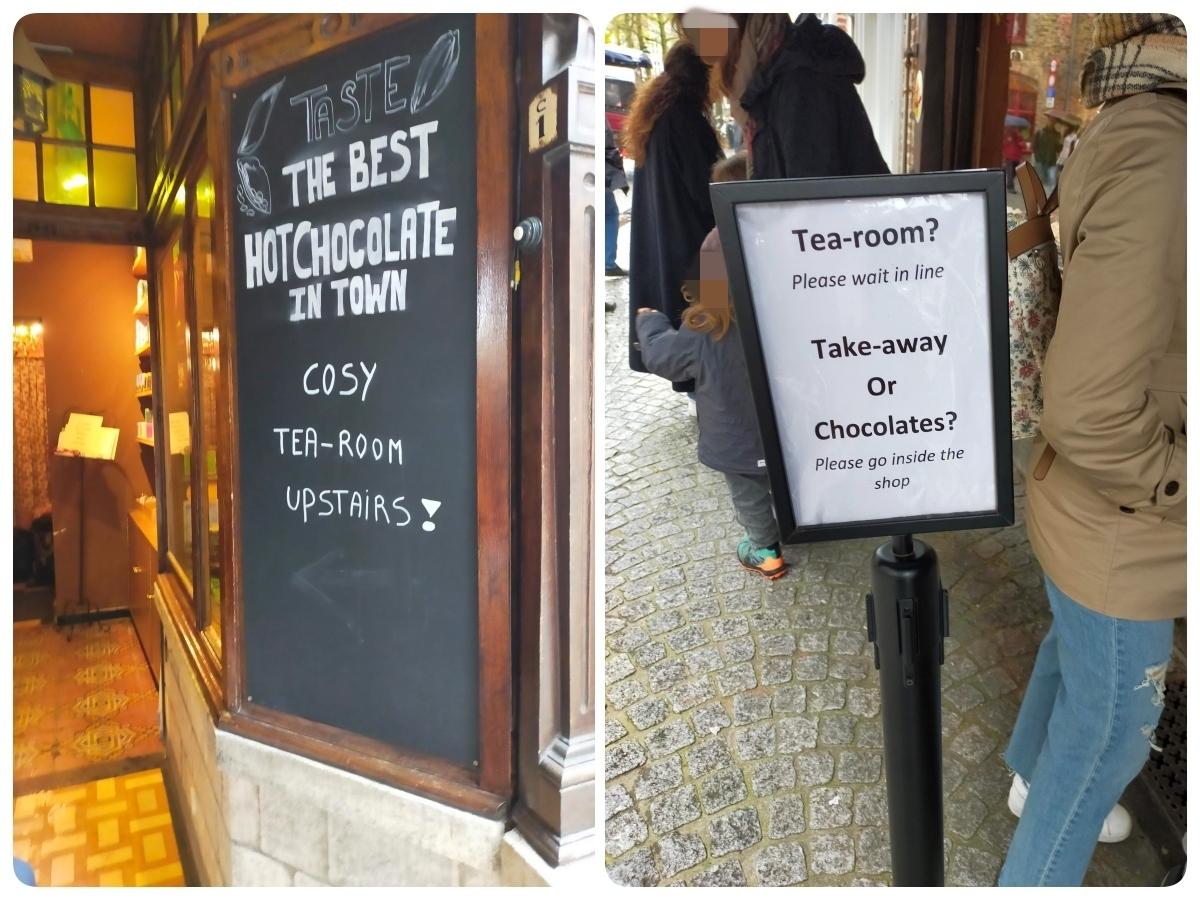 TASTE
THE BEST
HOTCHOCOLATE
IN TOWN
COSY
TEA-ROOM
UPSTAIRS!
C
1
Tea-room?
Please wait in line
Take-away
Or
Chocolates?
Please go inside the
shop